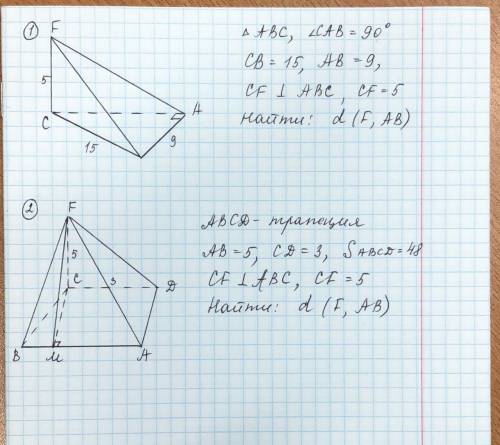 1
F
5
C
A
15
9
△ ABC, ∠CAB = 90°
CB = 15, AB = 9,
CF ⊥ ABC, CF = 5
Найти: d (F, AB)
2
F
5
C
3
D
B
M
A
ABCD - трапеция
AB = 5, CD = 3, S ABCD = 48
CF ⊥ ABC, CF = 5
Найти: d (F, AB)